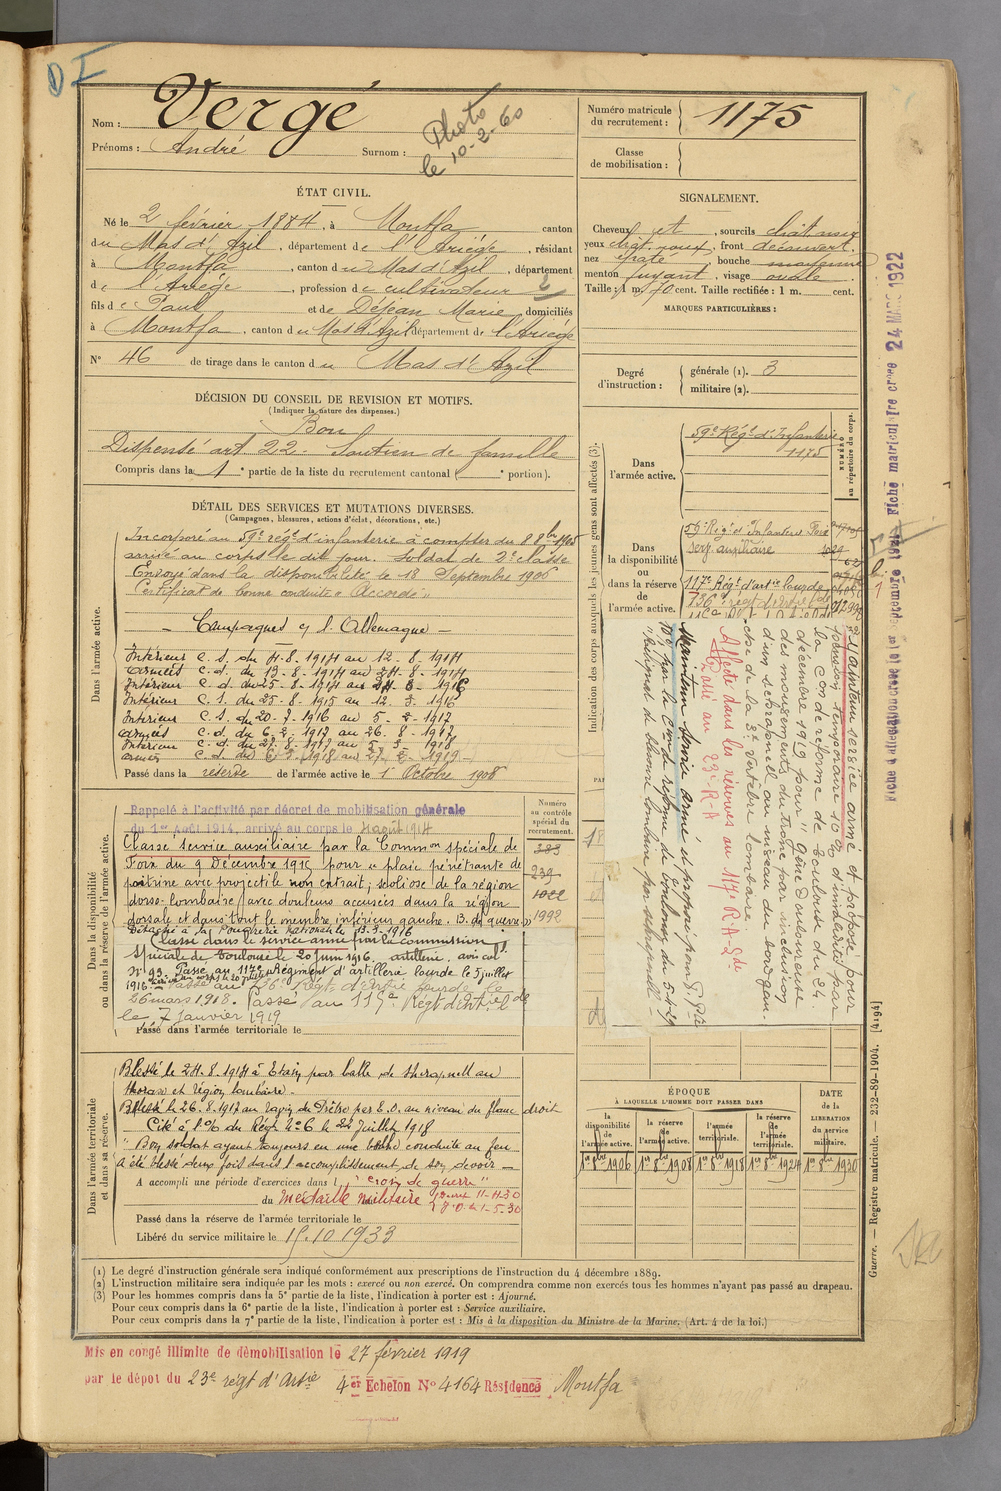 D I
Nom : Vergé
Prénoms : André Surnom :
Photo
le 10-2-60
Numéro matricule
du recrutement : 1175
Classe
de mobilisation :
ÉTAT CIVIL.
Né le 2 février 1884, à Montfa canton
du Mas d'Azil, département de l'Ariège, résidant
à Montfa, canton du Mas d'Azil, département
de l'Ariège, profession de cultivateur 2
fils de Paul et de Déjean Marie domiciliés
à Montfa, canton du Mas d'Azil département de l'Ariège
N° 46 de tirage dans le canton du Mas d'Azil
SIGNALEMENT.
Cheveux et, sourcils chât noir
yeux chât. roux, front découvert,
nez , bouche moyenne
menton fuyant, visage ovale.
Taille : 1 m. 70 cent. Taille rectifiée : 1 m. cent.
MARQUES PARTICULIÈRES :
Degré
d'instruction :
générale (1). 3
militaire (2).
DÉCISION DU CONSEIL DE REVISION ET MOTIFS.
(Indiquer la nature des dispenses.)
Bon
Dispensé art 22 - Soutien de famille
Compris dans la 1e partie de la liste du recrutement cantonal ( e portion).
DÉTAIL DES SERVICES ET MUTATIONS DIVERSES.
(Campagnes, blessures, actions d'éclat, décorations, etc.)
Dans l'armée active.
Incorporé au 59e rég.t d'infanterie à compter du 8 8bre 1905
arrivé au corps le dit jour. Soldat de 2e classe
Envoyé dans la disponibilité le 18 Septembre 1906
Certificat de bonne conduite "Accordé"
- Campagnes c/ l'Allemagne -
Intérieur C. S. du 4-8-1914 au 12-8-1914
Armées C. d. du 13-8-1914 au 24-8-1914
Intérieur C. d. du 25-8-1914 au
Intérieur C. S. du 25-8-1915 au 12-3-1916
Intérieur C. S. du 20-7-1916 au 5-2-1917
Armées C. d. du 6-2-1917 au 26-8-1917
Intérieur C. d. du 27-8-1917 au 5-3-1918
Armées C. d. du 6-3-1918 au 27-2-1919
Passé dans la réserve de l'armée active le 1er Octobre 1908
Indication des corps auxquels les jeunes gens sont affectés (3).
NUMÉRO
au répertoire du corps.
Dans
l'armée active.
59e Rég.t d'Infanterie
1175
Dans
la disponibilité
ou
dans la réserve
de
l'armée active.
59e Rég.t d'Infanterie Foix
Serv. auxiliaire
117e Rég.t d'art.ie lourde
Dans la disponibilité
ou dans la réserve de l'armée active.
Numéro
au contrôle
spécial du
recrutement.
383
239
1022
1992
Rappelé à l'activité par décret de mobilisation générale
du 1er Août 1914, arrivé au corps le 4 août 1914
Classé service auxiliaire par la Comm.on spéciale de
Foix du 9 Décembre 1915 pour "plaie pénétrante de
poitrine avec projectile non extrait, scoliose de la région
dorso-lombaire avec douleurs accusées dans la région
dorsale et dans tout le membre inférieur gauche. B. de guerre.»
Détaché à la Poudrerie Nationale le 13-3-1916
Classé dans le service armé par la commission
Spéciale de Toulouse le 20 Juin 1916. artillerie. avis col.
N° 93. Passé au 117e Régiment d'artillerie lourde le 5 juillet
1916. Passé au Régt d'artie lourde le
26 mars 1918. Passé au 115e Régt d'Art.ie l.de
le 7 Janvier 1919
Passé dans l'armée territoriale le
Maintenu service armé et proposé pour
pension temporaire 10 % d'invalidité par
la Con de réforme de Toulouse du 24
décembre 1919 pour "Gêne douloureuse
des mouvements du tronc par inclusion
d'un schrapnell au niveau du bord gau-
che de la 3e vertèbre lombaire.
Affecté dans les réserves au 117e R.A.Lde
Passé au 23e R-A
Maintenu service armé et proposé pens. P. 
Dans l'armée territoriale
et dans sa réserve.
Blessé le 24.8.1914 à Etain par balle de shrapnell au
thorax et région lombaire.
Blessé le 26.8.1917 au ravin du Piètre par E.O. au niveau du flanc droit
Cité à l'O/ du Régt N° 6 le 22 juillet 1918
"Bon soldat ayant toujours eu une belle conduite au feu
A été blessé deux fois dans l'accomplissement de son devoir -
A accompli une période d'exercices dans l "Croix de guerre"
du Médaille militaire
Passé dans la réserve de l'armée territoriale le
Libéré du service militaire le 15.10.1933
ÉPOQUE
À LAQUELLE L'HOMME DOIT PASSER DANS
la
disponibilité
de
l'armée active.
la réserve
de
l'armée active.
l'armée
territoriale.
la réserve
de
l'armée
territoriale.
DATE
de la
LIBÉRATION
du service
militaire.
1er 8bre 1906
1er 8bre 1908
1er 8bre 1918
1er 8bre 1924
1er 8bre 1930
(1) Le degré d'instruction générale sera indiqué conformément aux prescriptions de l'instruction du 4 décembre 1889.
(2) L'instruction militaire sera indiquée par les mots : exercé ou non exercé. On comprendra comme non exercés tous les hommes n'ayant pas passé au drapeau.
(3) Pour les hommes compris dans la 5e partie de la liste, l'indication à porter est : Ajourné.
Pour ceux compris dans la 6e partie de la liste, l'indication à porter est : Service auxiliaire.
Pour ceux compris dans la 7e partie de la liste, l'indication à porter est : Mis à la disposition du Ministre de la Marine. (Art. 4 de la loi.)
Mis en congé illimité de démobilisation le 27 février 1919
par le dépôt du 23e régt d'Artie 4er Echelon N° 4164 Résidence Montfa
Fiche matriculaire créée 24 MARS 1922
Guerre. — Registre matricule. — 232-89-1904. [4194]